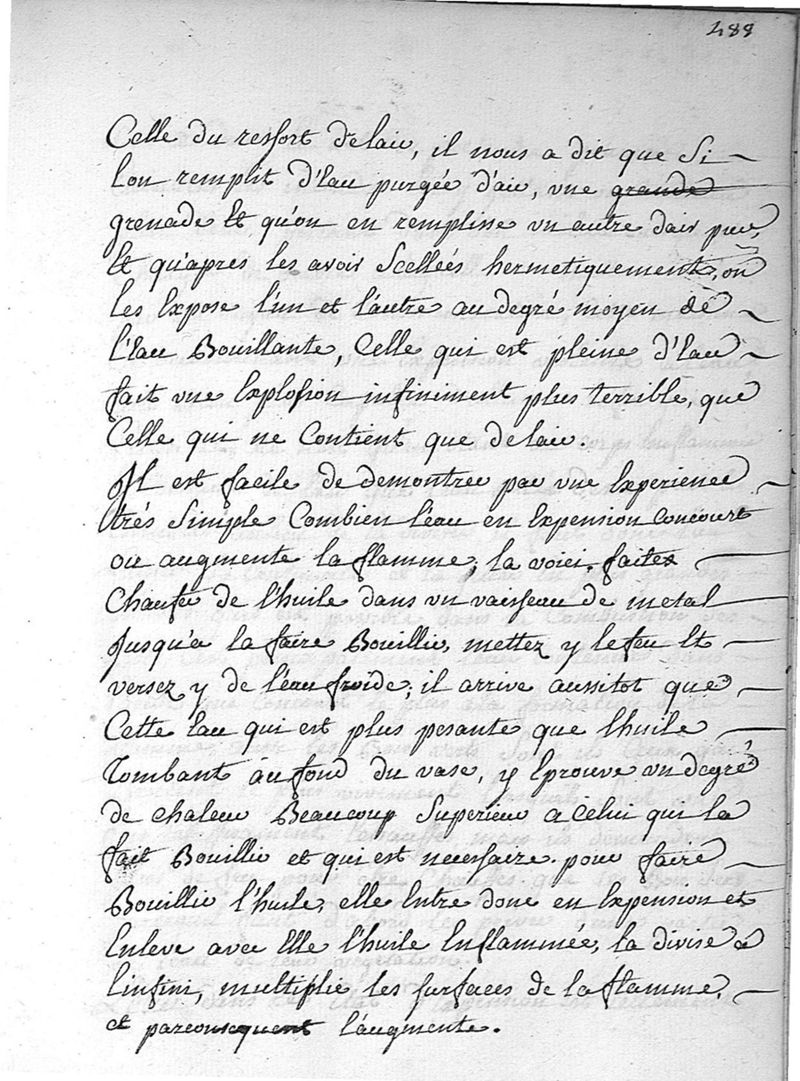 488
Celle du resfort de lair, il nous a dit que Si
lon remplit d'Eau purgée d'air, vne grande
grenade Et qu'on en remplisse vn autre dair pur,
Et qu'apres les avoir Scelleés hermetiquement, on
les Expose l'un et l'autre au degré moyen de
l'Eau Bouillante, Celle qui est pleine d'Eau
fait vne Explosion infiniment plus terrible, que
Celle qui ne Contient que de lair.
Il est facile de demontrer par vne Experience
trés Simple Combien l'eau en Expension Concourt
ou augmente la flamme, la voici. faites
Chaufer de l'huile dans vn vaisseau de metal
Jusqu'a la faire Bouillir, mettez y le feu Et
versez y de l'éau froide; il arrive aussitot que
Cette Eau qui est plus pesante que l'huile
Tombant au fond du vase, y Eprouve vn degré
de chaleur Beaucoup Superieur a Celui qui la
fait Bouillir et qui est necessaire pour faire
Bouillir l'huile, elle Entre donc en Expension et
Enleve avec Elle l'huile Enflammée, la divise a
l'infini, multiplie les surfaces de la flamme,
et parconsequent l'augmente.